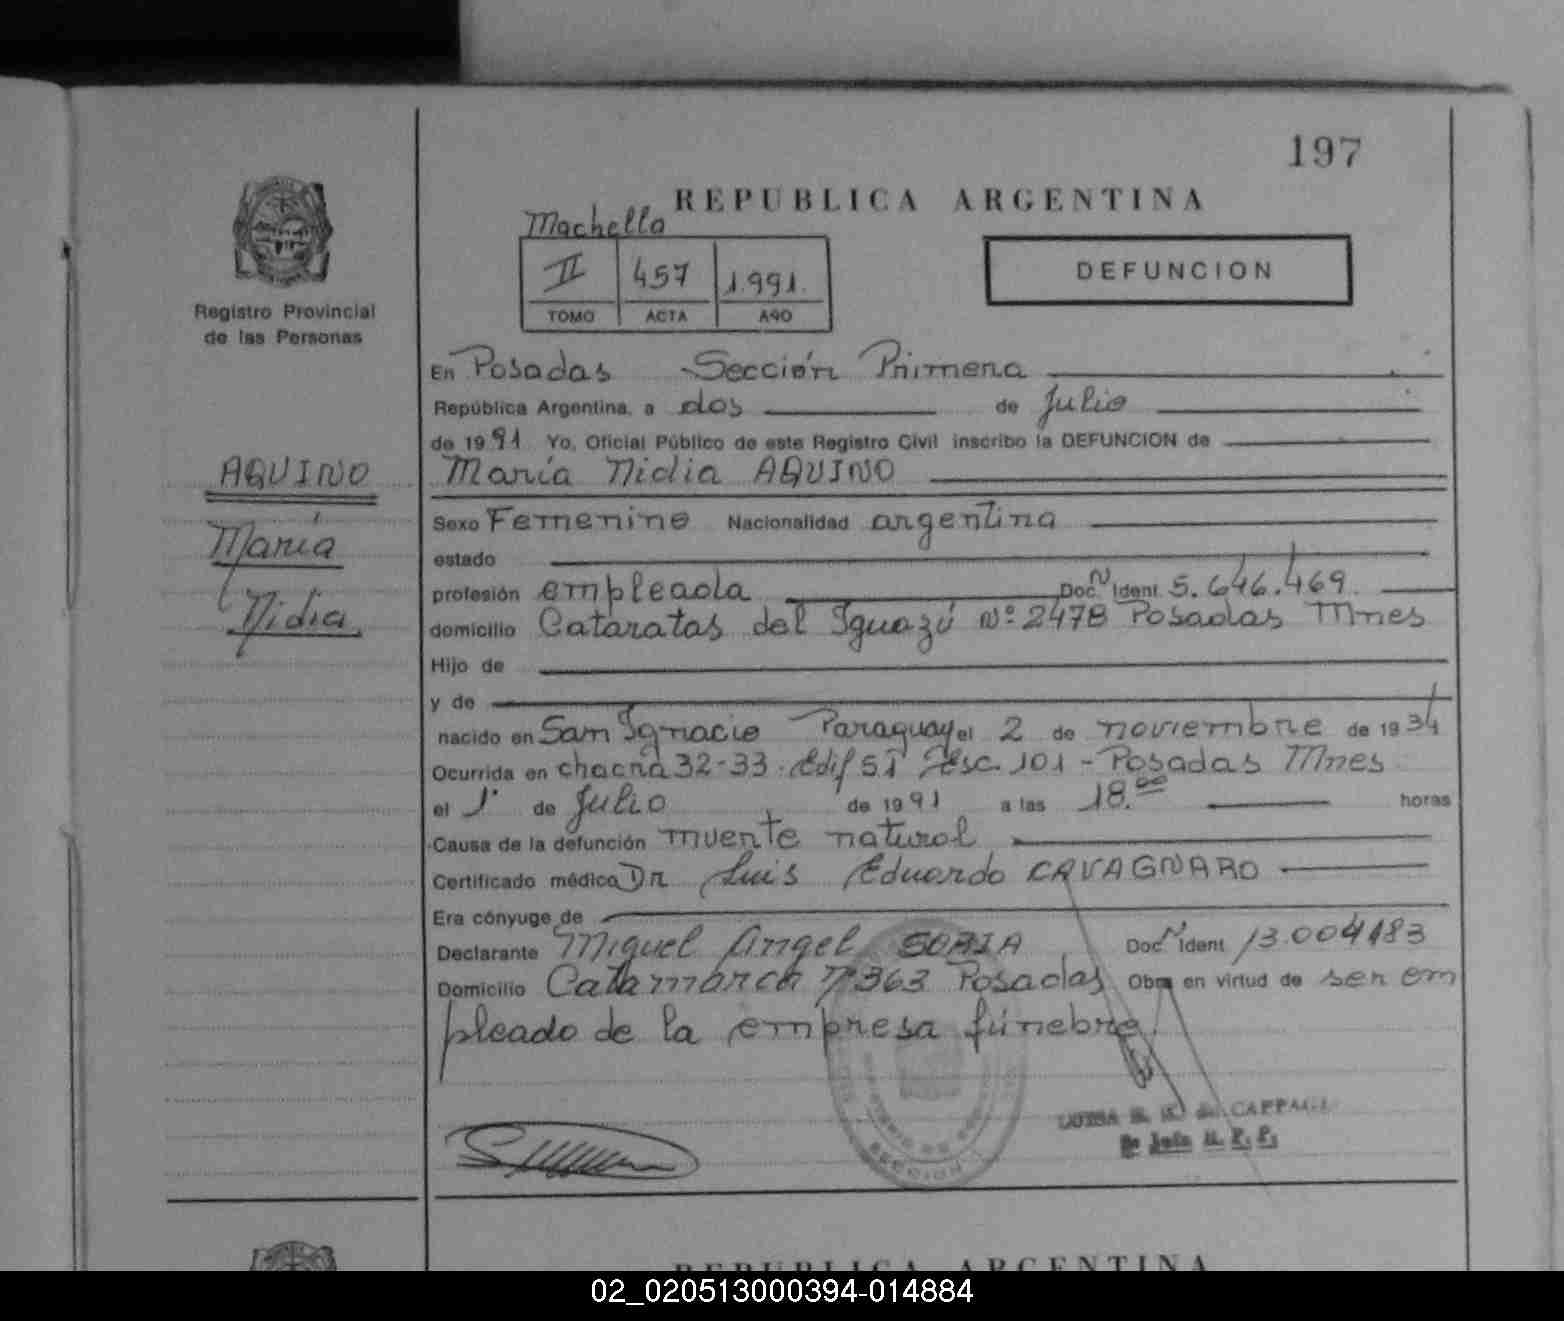 197
REPUBLICA ARGENTINA
Machella
II 457 1.991.
TOMO ACTA AÑO
DEFUNCION
Registro Provincial
de las Personas
AQUINO
María
Nidia
En Posadas Sección Primera
República Argentina, a dos de Julio
de 1991 Yo, Oficial Público de este Registro Civil inscribo la DEFUNCION de
María Nidia AQUINO
Sexo Femenino Nacionalidad argentina
estado
profesión empleada Doc. N Ident 5.646.469.
domicilio Cataratas del Iguazú Nº 2478 Posadas Mnes
Hijo de
y de
nacido en San Ignacio Paraguay el 2 de noviembre de 1934
Ocurrida en chacra 32-33. Edif 51 Esc. 101 - Posadas Mnes
el 1° de Julio de 1991 a las 18.00 horas
Causa de la defunción muerte natural
Certificado médico Dr Luis Eduardo CAVAGNARO
Era cónyuge de
Declarante Miguel Angel SORIA Doc. N Ident 13.004183
Domicilio Catamarca Nº 363 Posadas Obra en virtud de ser em
pleado de la empresa fúnebre.
SECCION
REPUBLICA ARGENTINA
02_020513000394-014884